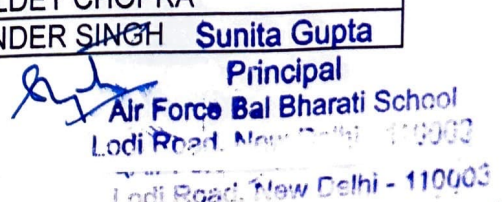 LDEV CHOPRA
NDER SINGH Sunita Gupta
Principal
Air Force Bal Bharati School
Lodi Road, New Delhi - 110003
Lodi Road, New Delhi - 110003